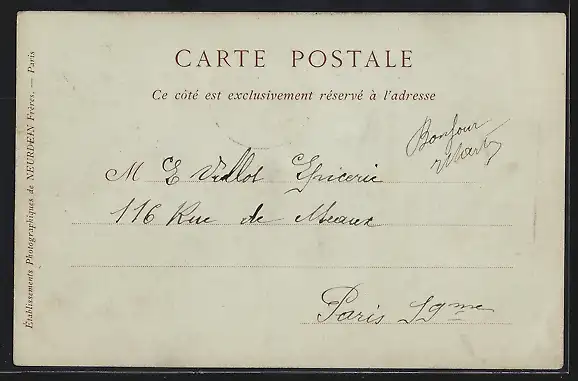 CARTE POSTALE
Ce côté est exclusivement réservé à l'adresse
Bonjour
M E Villot Epicerie
116 Rue de Meaux
Paris 19me
Établissements Photographiques de NEURDEIN Frères. — Paris